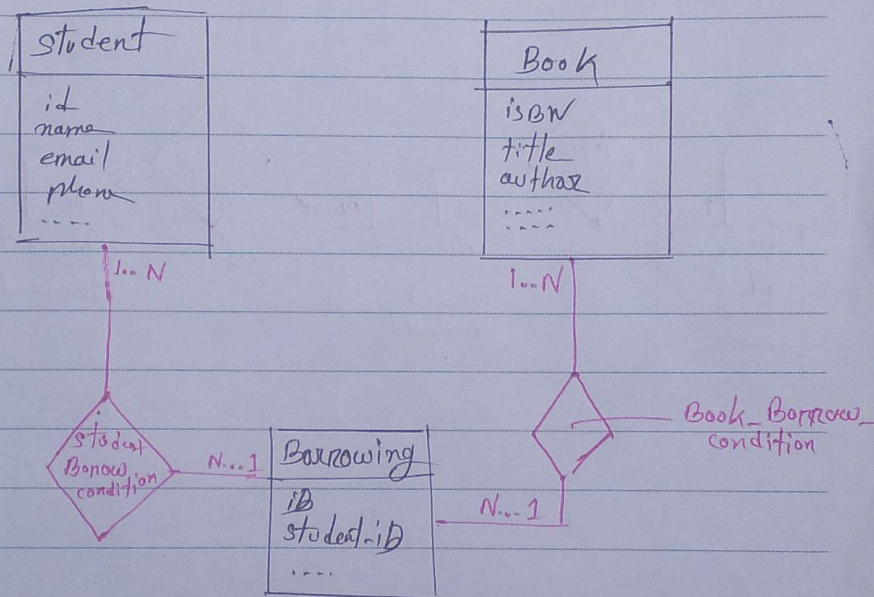 Student
id
name
email
phone
....
1.. N
Book
isBN
title
author
.....
....
1..N
student
Borow_
condition
N...1
Borrowing
iD
student-iD
....
N...1
Book_Borrow_
condition